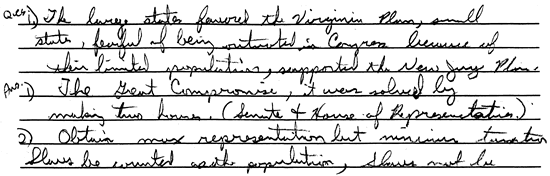 Ques 1) The large states favored the Virginia Plan, small
state, fearful of being outvoted in Congress because of
their limited population, supported the New Jersy Plan.
Ans: 1) The Great Compromise, it was solved by
making two houses. (Senate & House of Representatives.)
2) Obtain max representation but minium taxation
Slaves be counted as the population, Slaves must be